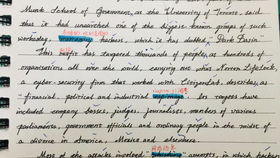 Munk School of Government, at the University of Toronto, said
that it had unearthed one of the biggest-known groups of such
workaday hackers, which it has dubbed "Dark Basin".
This outfit has targeted thousands of people, at hundreds of
organisations all over the world, carrying out what NortonLifeLock,
a cyber-security firm that worked with CitizenLab, describes as
financial, political and industrial espionage. Its targets have
included company bosses, judges, journalists, members of various
parliaments, government officials and ordinary people in the midst of
a divorce in America, Mexico and elsewhere.
Most of the attacks involved phishing attempts, in which